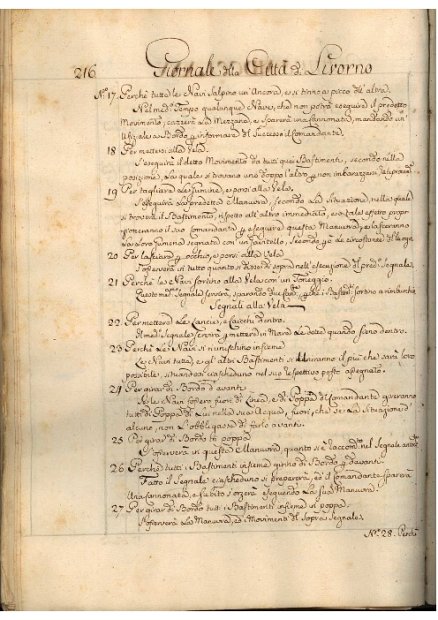 216 Giornale della Città di Livorno
N.° 17. Perchè tutte le Navi Salpino un' Ancora, e si tirino a picco dell' altra.
Nel med.° Tempo qualunque Nave, che non potrà eseguire il predetto
Movimento, caverà La Mezzana, e Sparerà una Cannonata, mandando un'
Ufiziale a Bordo p informare del Successo il Comandante.
18 Per mettersi alla Vela.
S'eseguirà il detto Movimento da tutti quei Bastimenti, secondo nella
posizione, La quale si trovano uno doppo l'altro p non imbarazzarsi
19 Per tagliare Le Gumine, e porsi alla Vela.
S'eseguirà La predetta Manuvra, secondo La Situazione, nella quale
si trova il Bastimento, rispetto all' altro immediato, e a tale effetto
il suo Comandante p eseguire questa Manuvra, e lasceranno
La Loro Gumina segnata con un Gavitello, secondo
20 Per lasciare p occhio, e porsi alla Vela
S'osserverà in tutto quanto si disse di sopra nell' esecuzione del pred.° Segnale.
21 Perchè le Navi Sortino alla Vela con un Tonneggio.
Queste med.° Segnale Servirà, sparando due Cannonate, p che i Bastim.ti Sortino a rimburchio
Segnali alla Vela
22 Per mettere Le Lancie, e Caicchi dentro.
Il med.° Segnale Servirà p metterle in Mare Le dette quando sieno dentro.
23 Perchè Le Navi si riunischino insieme
Le Navi tutte, e gl' altri Bastimenti si uniranno il più che sarà Loro
possibile, situandosi ciascheduno nel suo respettivo posto assegnato.
24 Per girar di Bordo d'avanti.
Se le Navi sopero fuori di Linea, e di Poppa del Comandante gireranno
tutti di Poppa di Lui nella sua Acqua, fuori, che se La Situazione di
alcuno, non L'obbligasse di farlo avanti.
25 Per girar di Bordo in poppa
S'osserverà in questa Manuvra, quanto si è raccom.to nel Segnale antec.te
26 Perchè tutti i Bastimenti insieme girino di Bordo p davanti.
Fatto il Segnale ciascheduno si preparerà, ed il Comandante sparerà
Una Cannonata, e subito s'orzerà eseguendo La sua Manuvra.
27 Per girar di Bordo tutti i Bastimenti insieme in poppa.
S'osserverà La Manuvra, ed il Movimento del sopra Segnale.
N.° 28. Perchè